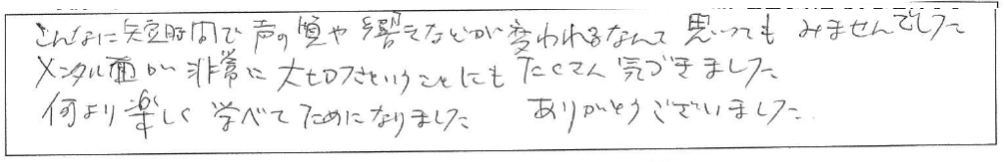 こんなに短時間で声の質や響きなどが変われるなんて思ってもみませんでした
メンタル面が非常に大切さということにもたくさん気づきました
何より楽しく学べてためになりました　ありがとうございました